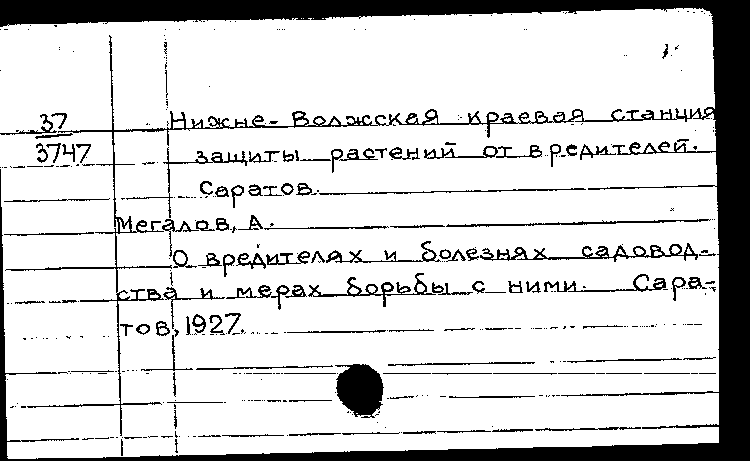 37 Нижне-Волжская краевая станция
3747 защиты растений от вредителей.
Саратов.
Мегалов, А.
О вредителях и болезнях садовод-
ства и мерах борьбы с ними. Сара-
тов, 1927.